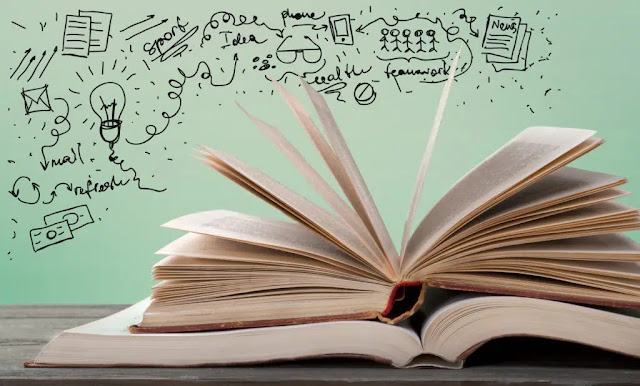 phone
sport
Idea
News
teamwork
mail
refresh